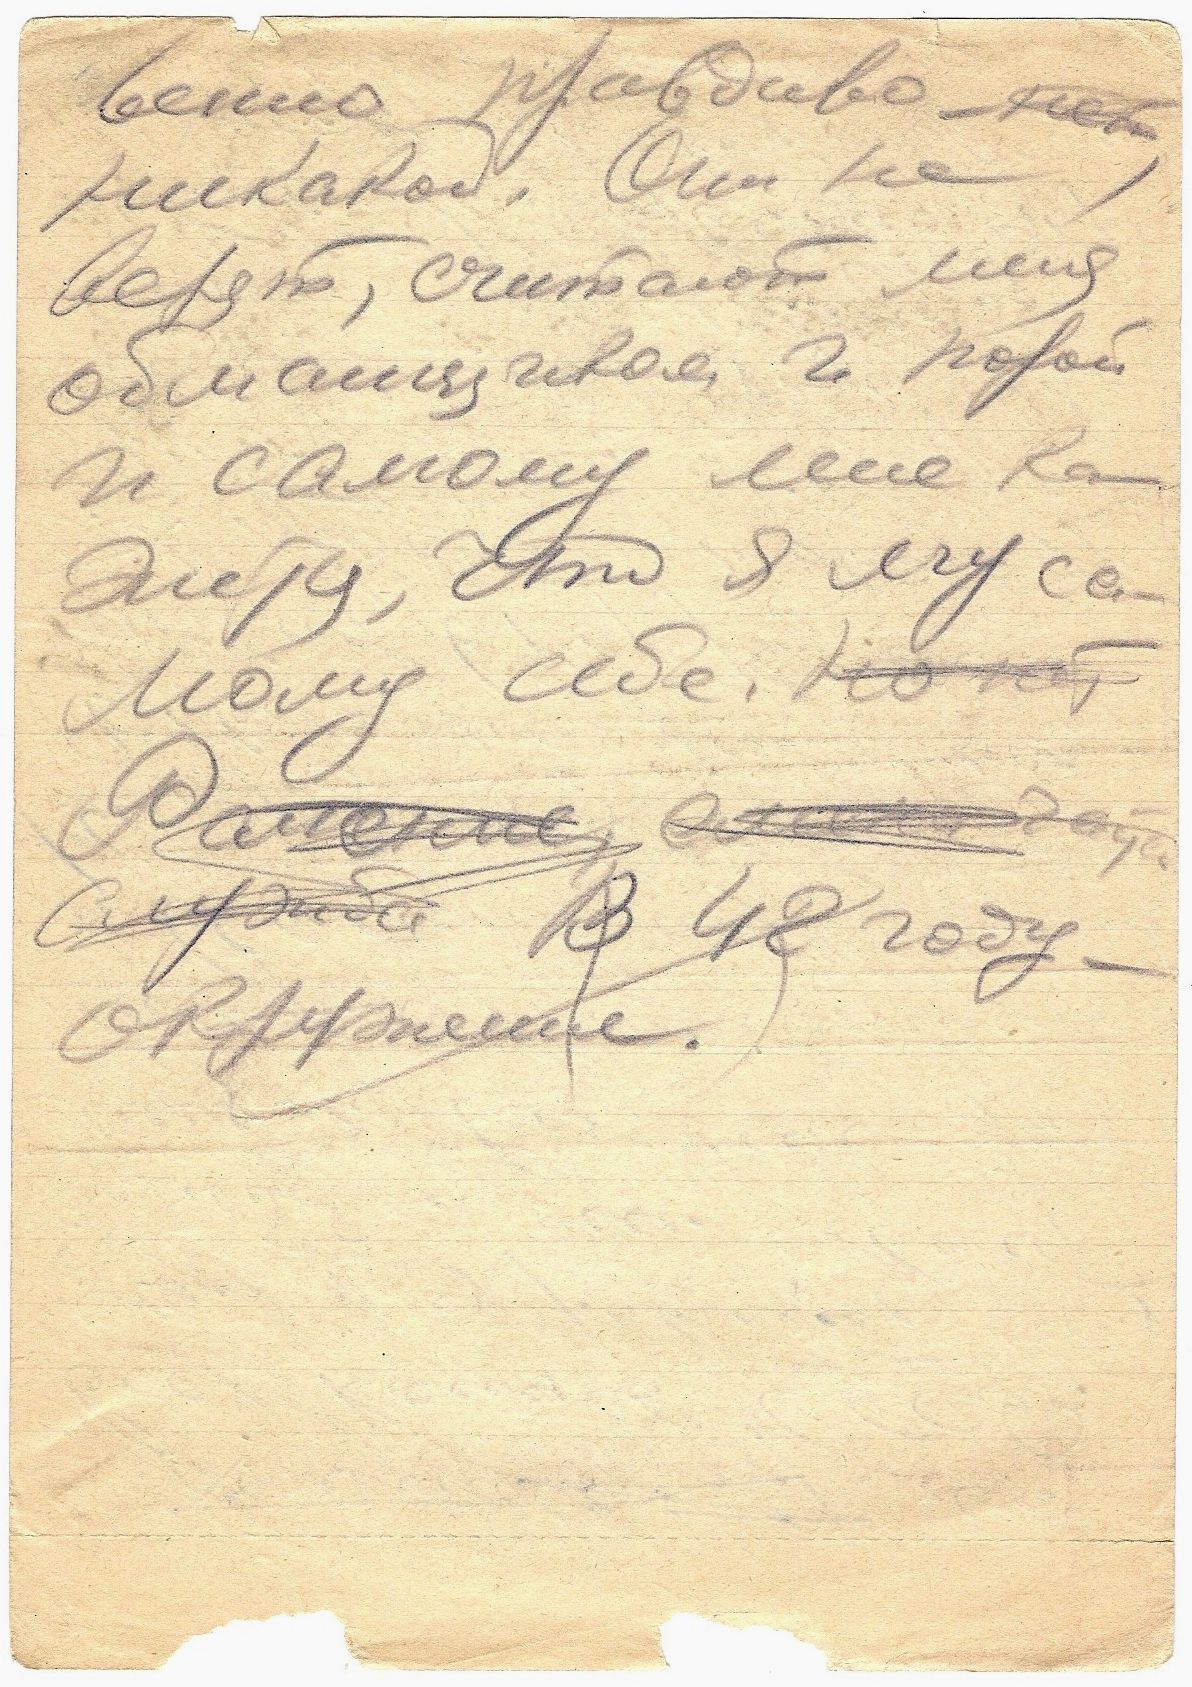 венно правдиво – нет
никакой. Они не
верят, считают меня
обманщиком и порой
и самому мне ка-
жется, что я лгу са-
мому себе. Но нет
Ранение,
служба В 42 году –
окружение.